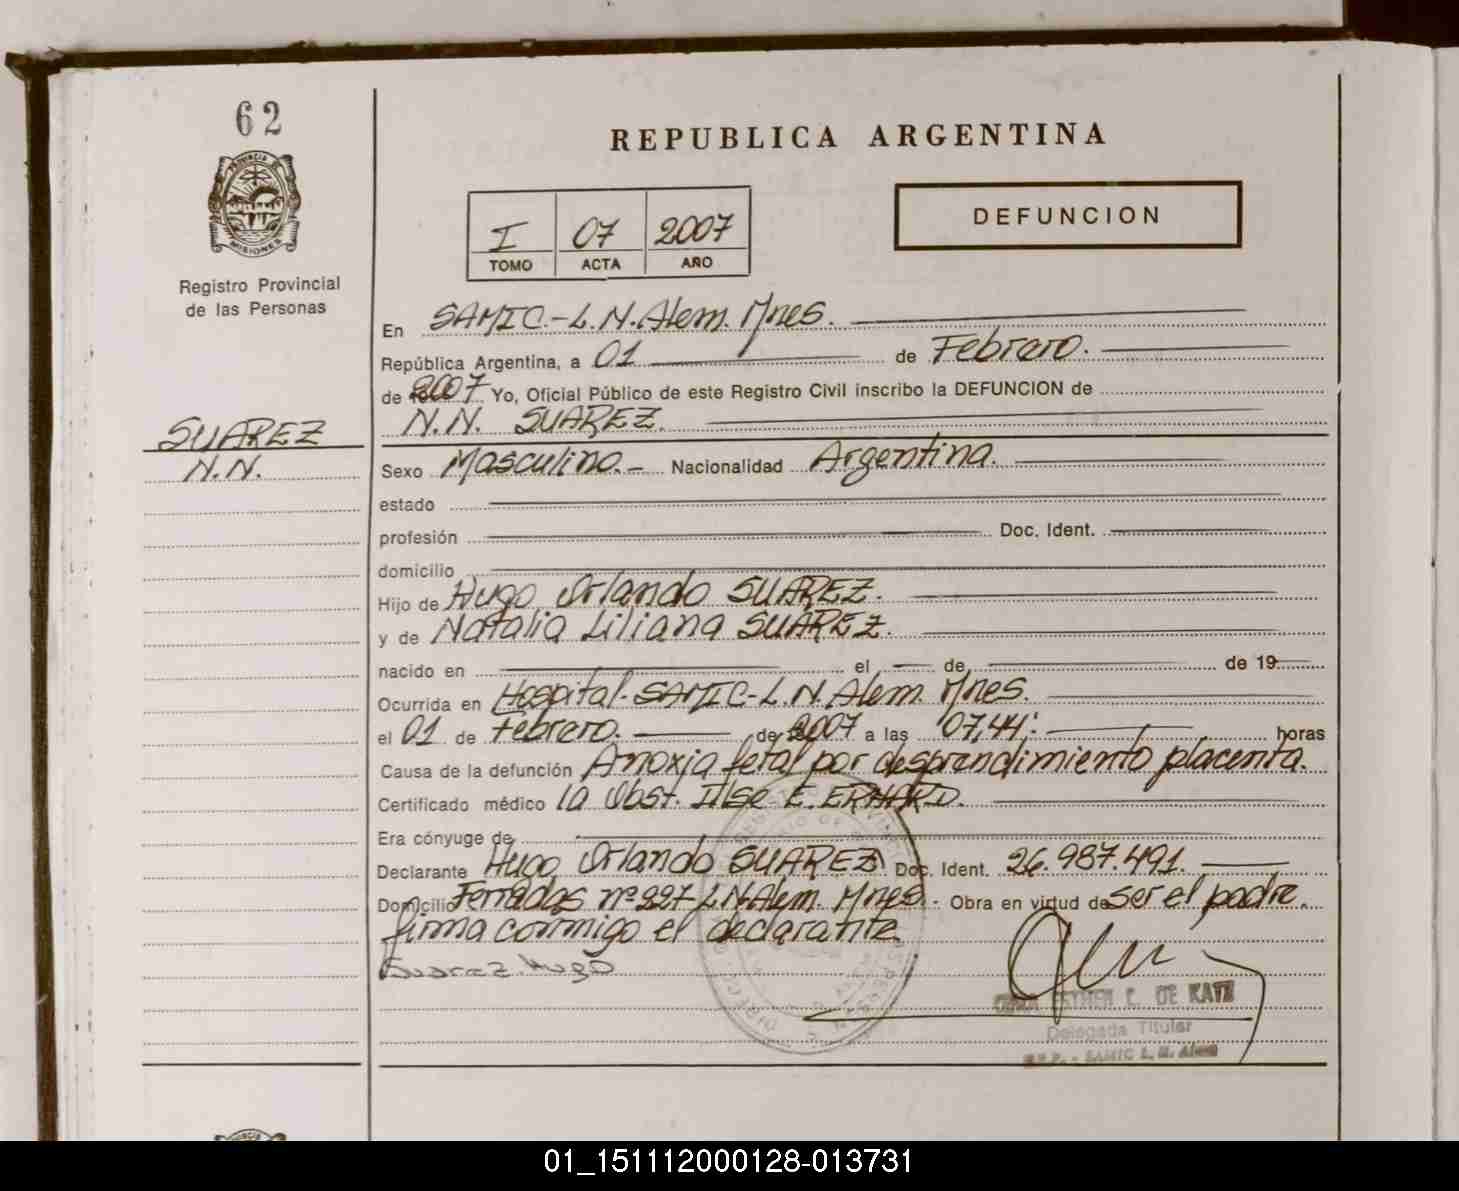 62
PROVINCIA DE
MISIONES
Registro Provincial
de las Personas
SUAREZ
N.N.
REPUBLICA ARGENTINA
I 07 2007
TOMO ACTA AÑO
DEFUNCION
En SAMIC.-L.N.Alem. Mnes.
República Argentina, a 01 de Febrero.
de 2007 Yo, Oficial Público de este Registro Civil inscribo la DEFUNCION de
N.N. SUAREZ.
Sexo Masculino.- Nacionalidad Argentina.
estado
profesión Doc. Ident.
domicilio
Hijo de Hugo Orlando SUAREZ.
y de Natalia Liliana SUAREZ.
nacido en el de de 19
Ocurrida en Hospital-SAMIC-L.N.Alem. Mnes.
el 01 de Febrero. de 2007 a las 07,44: horas
Causa de la defunción Anoxia fetal por desprendimiento placenta.
Certificado médico la Obst. Ilse E. ERHARD.
Era cónyuge de
Declarante Hugo Orlando SUAREZ Doc. Ident. 26.987.491.
Domicilio nº 227-L.N.Alem. Mnes.- Obra en virtud de ser el padre.
firma conmigo el declarante
Suarez Hugo
ESTHER C. DE KATZ
Delegada Titular
R.P.P. - SAMIC L. N. Alem
01_151112000128-013731